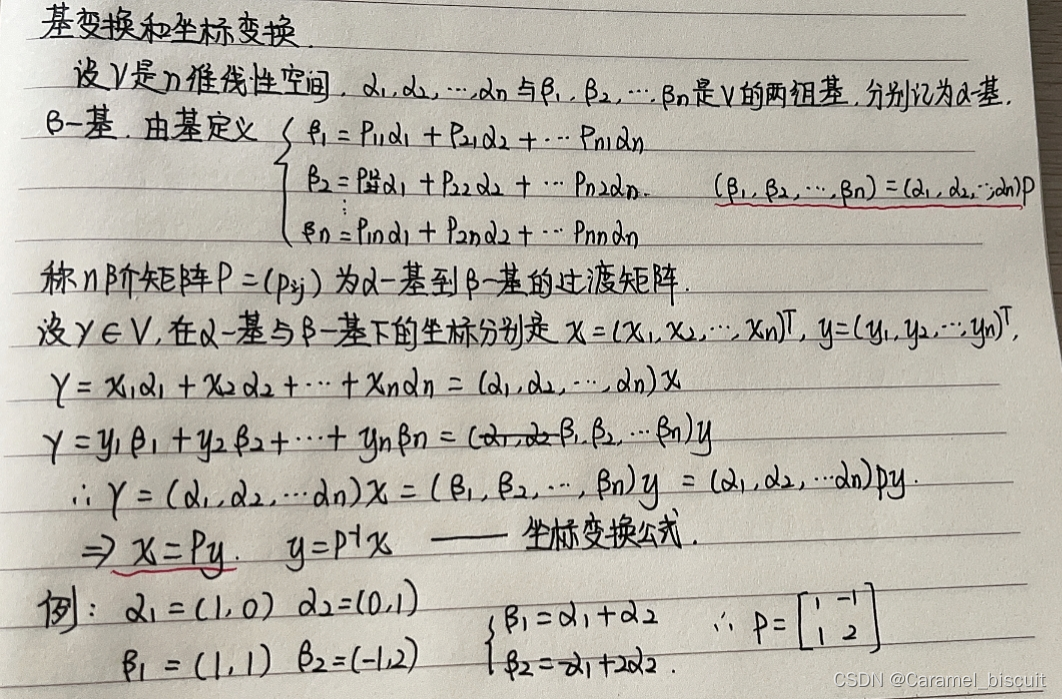 基变换和坐标变换.
设V是n维线性空间, α₁,α₂,…,αn 与β₁,β₂,…,βn是V的两组基,分别记为α-基,
β-基. 由基定义 { β₁ = P₁₁α₁ + P₂₁α₂ + … Pn₁αn
β₂ = P₁₂α₁ + P₂₂α₂ + … Pn₂αn. (β₁, β₂, …, βn) = (α₁, α₂, …, αn)P
⋮
βn = P₁nα₁ + P₂nα₂ + … Pnnαn
称n阶矩阵P = (Pij) 为α-基到β-基的过渡矩阵.
设γ∈V,在α-基与β-基下的坐标分别是 x = (x₁, x₂, …, xn)ᵀ, y = (y₁, y₂, …, yn)ᵀ,
γ = x₁α₁ + x₂α₂ + … + xnαn = (α₁, α₂, …, αn)x
γ = y₁β₁ + y₂β₂ + … + ynβn = (β₁, β₂, … βn)y
∴ γ = (α₁, α₂, … αn)x = (β₁, β₂, …, βn)y = (α₁, α₂, … αn)py.
⇒ x = Py. y = P⁻¹x —— 坐标变换公式.
例: α₁ = (1, 0) α₂ = (0, 1) { β₁ = α₁ + α₂ ∴ P = [ 1 -1
β₁ = (1, 1) β₂ = (-1, 2) β₂ = -α₁ + 2α₂. 1 2 ]
CSDN @Caramel_biscuit